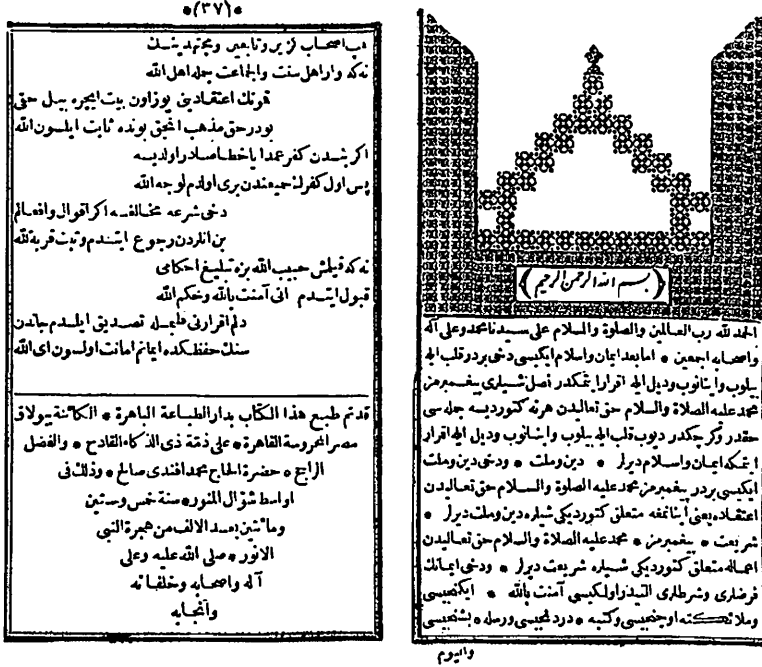 ﴿ بسم الله الرحمن الرحيم ﴾
الحمد لله رب العالمين والصلوة والسلام على سيدنا محمد وعلى آله
واصحابه اجمعين * اما بعد ايمان واسلام ايكيسى دخى بردر قلب ايله
بيلوب واينانوب و ديل ايله اقرار ايتمكدر اصل شيلرى پيغمبرمز
محمد عليه الصلاة والسلام حق تعاليدن هرنه كتورديسه جمله سى
حقدر وكرچكدر ديوب قلب ايله بيلوب واينانوب وديل ايله اقرار
ايتمكه ايمان واسلام ديرلر * دين وملت * ودخى دين وملت
ايكيسى بردر پيغمبرمز محمد عليه الصلوة والسلام حق تعاليدن
اعتقاده يعنى اينانمغه متعلق كتورديكى شيلره دين وملت ديرلر *
شريعت * پيغمبرمز * محمد عليه الصلاة والسلام حق تعاليدن
اعماله متعلق كتورديكى شيلره شريعت ديرلر * ودخى ايمانك
فرضلرى وشرطلرى التيدر اولكيسى آمنت بالله * ايكنجيسى
وملائكته اوچنجيسى وكتبه * دردنجيسى ورسله * بشنجيسى
واليوم
*(٣٧)*
اصحاب وتابعين ومجتهدينك
نه كه وار اهل سنت والجاعت جمله اهل الله
قونك اعتقادينى بوزاون بيت ايچره بيل حق
بودر حق مذهب انجق بونده ثابت ايلسون الله
اكر بندن كفر عمدا يا خطا صادر اولديسه
پس اول كفرلر جميعندن برى اولدم لوجه الله
دخى شرعه مخالفسه اكر اقوال وافعالم
بن انلردن رجوع ايتدم وتبت قربة لله
نه كه قيلمش حبيب الله بزه تبليغ احكامى
قبول ايتدم انى آمنت بالله وحكم الله
دلم اقرارنى تصديق ايلدم جاندن
سنك حفظكده ايمانم امانت اولسون اى الله
قد تم طبع هذا الكتاب بدار الطباعة الباهرة * الكائنة ببولاق
مصر المحروسة القاهرة * على ذمة ذى الذكاء القادح * والفضل
الراجح * حضرة الحاج محمد افندى صالح * وذلك فى
اواسط شوال المنور * سنة خمس وستين
ومائتين بعد الالف من هجرة النبى
الانور * صلى الله عليه وعلى
آله واصحابه وخلفائه
وأنجابه